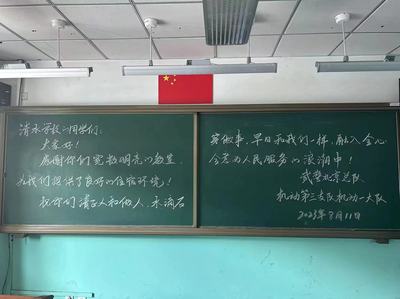 清水学校的同学们:
大家好!
感谢你们宽敞明亮的教室
为我们提供了良好的住宿环境!
祝你们清正人和做人、水滴石
穿做事,早日和我们一样,融入全心
全意为人民服务的浪潮中!
武警北京总队
机动第三支队机动一大队
2023年8月11日